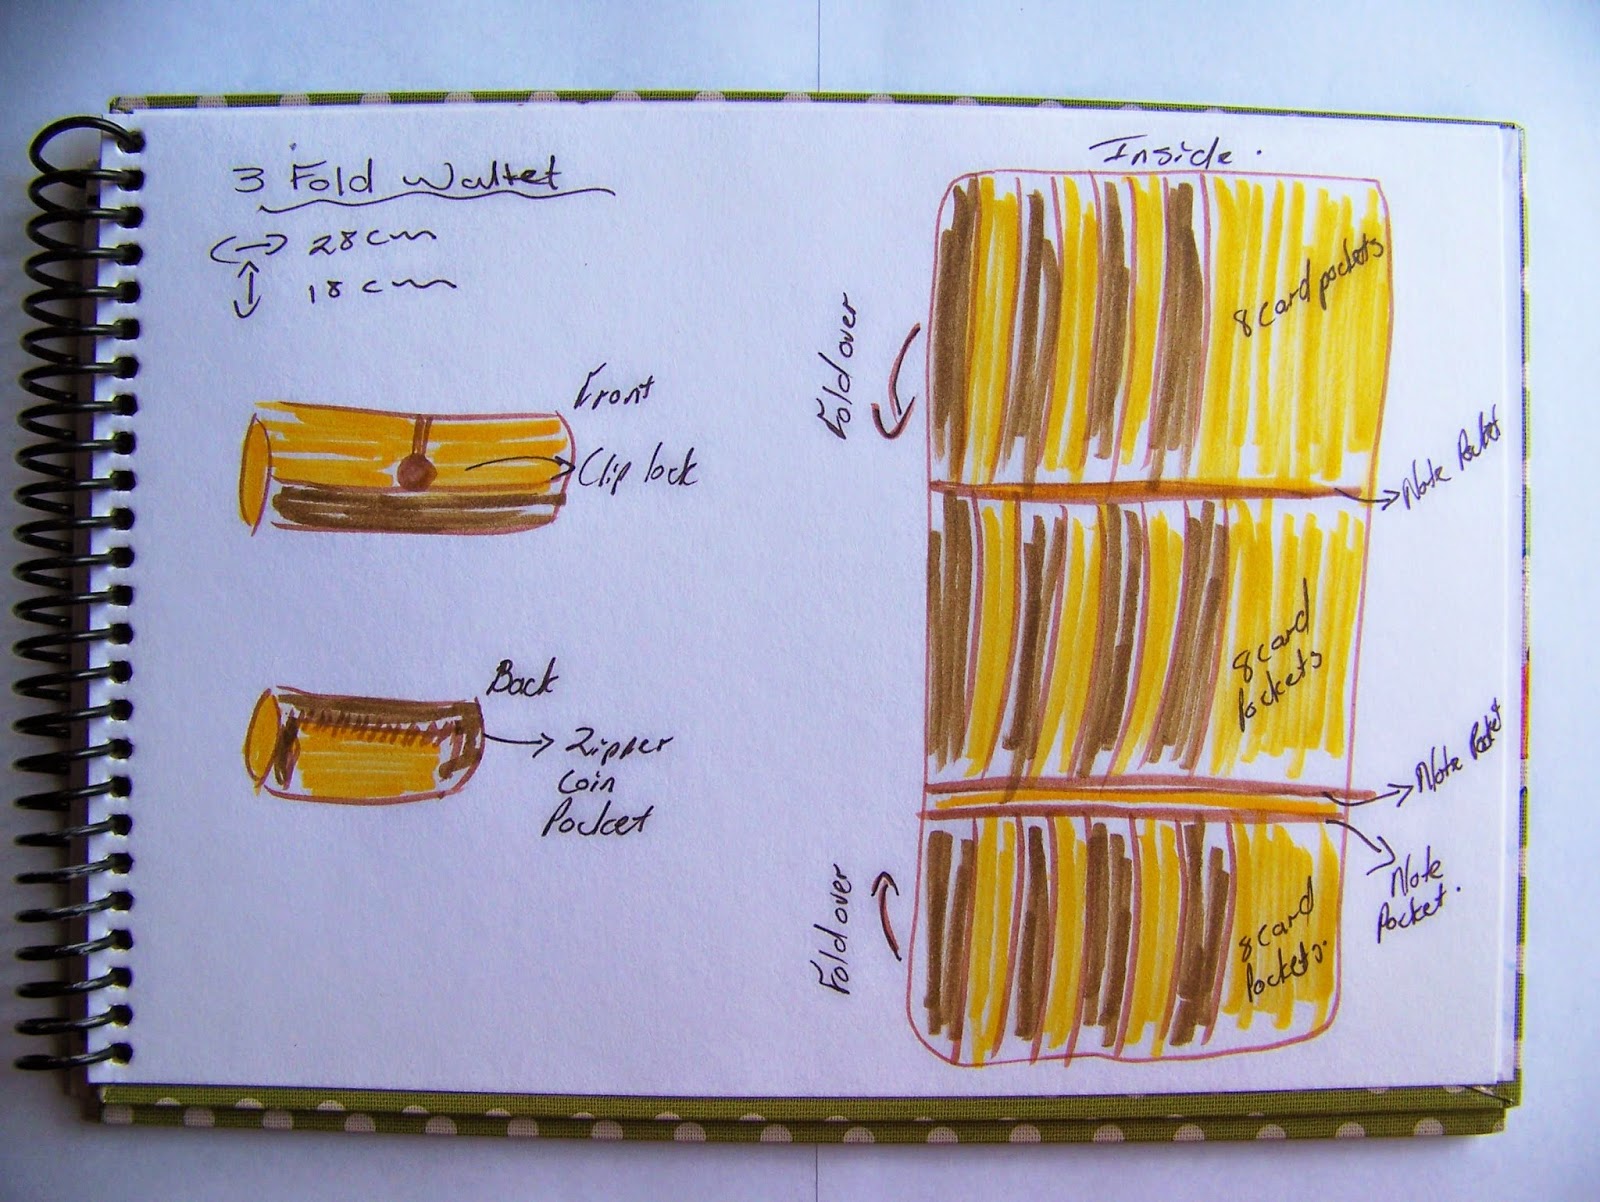 3 Fold Wallet
28cm
18cm
Front
Clip lock
Back
Zipper
Coin
Pocket
Inside.
Fold over
8 card pockets
Note Pocket
8 card
Pockets
Note Pocket
Note
Pocket.
Fold over
8 card
Pockets.